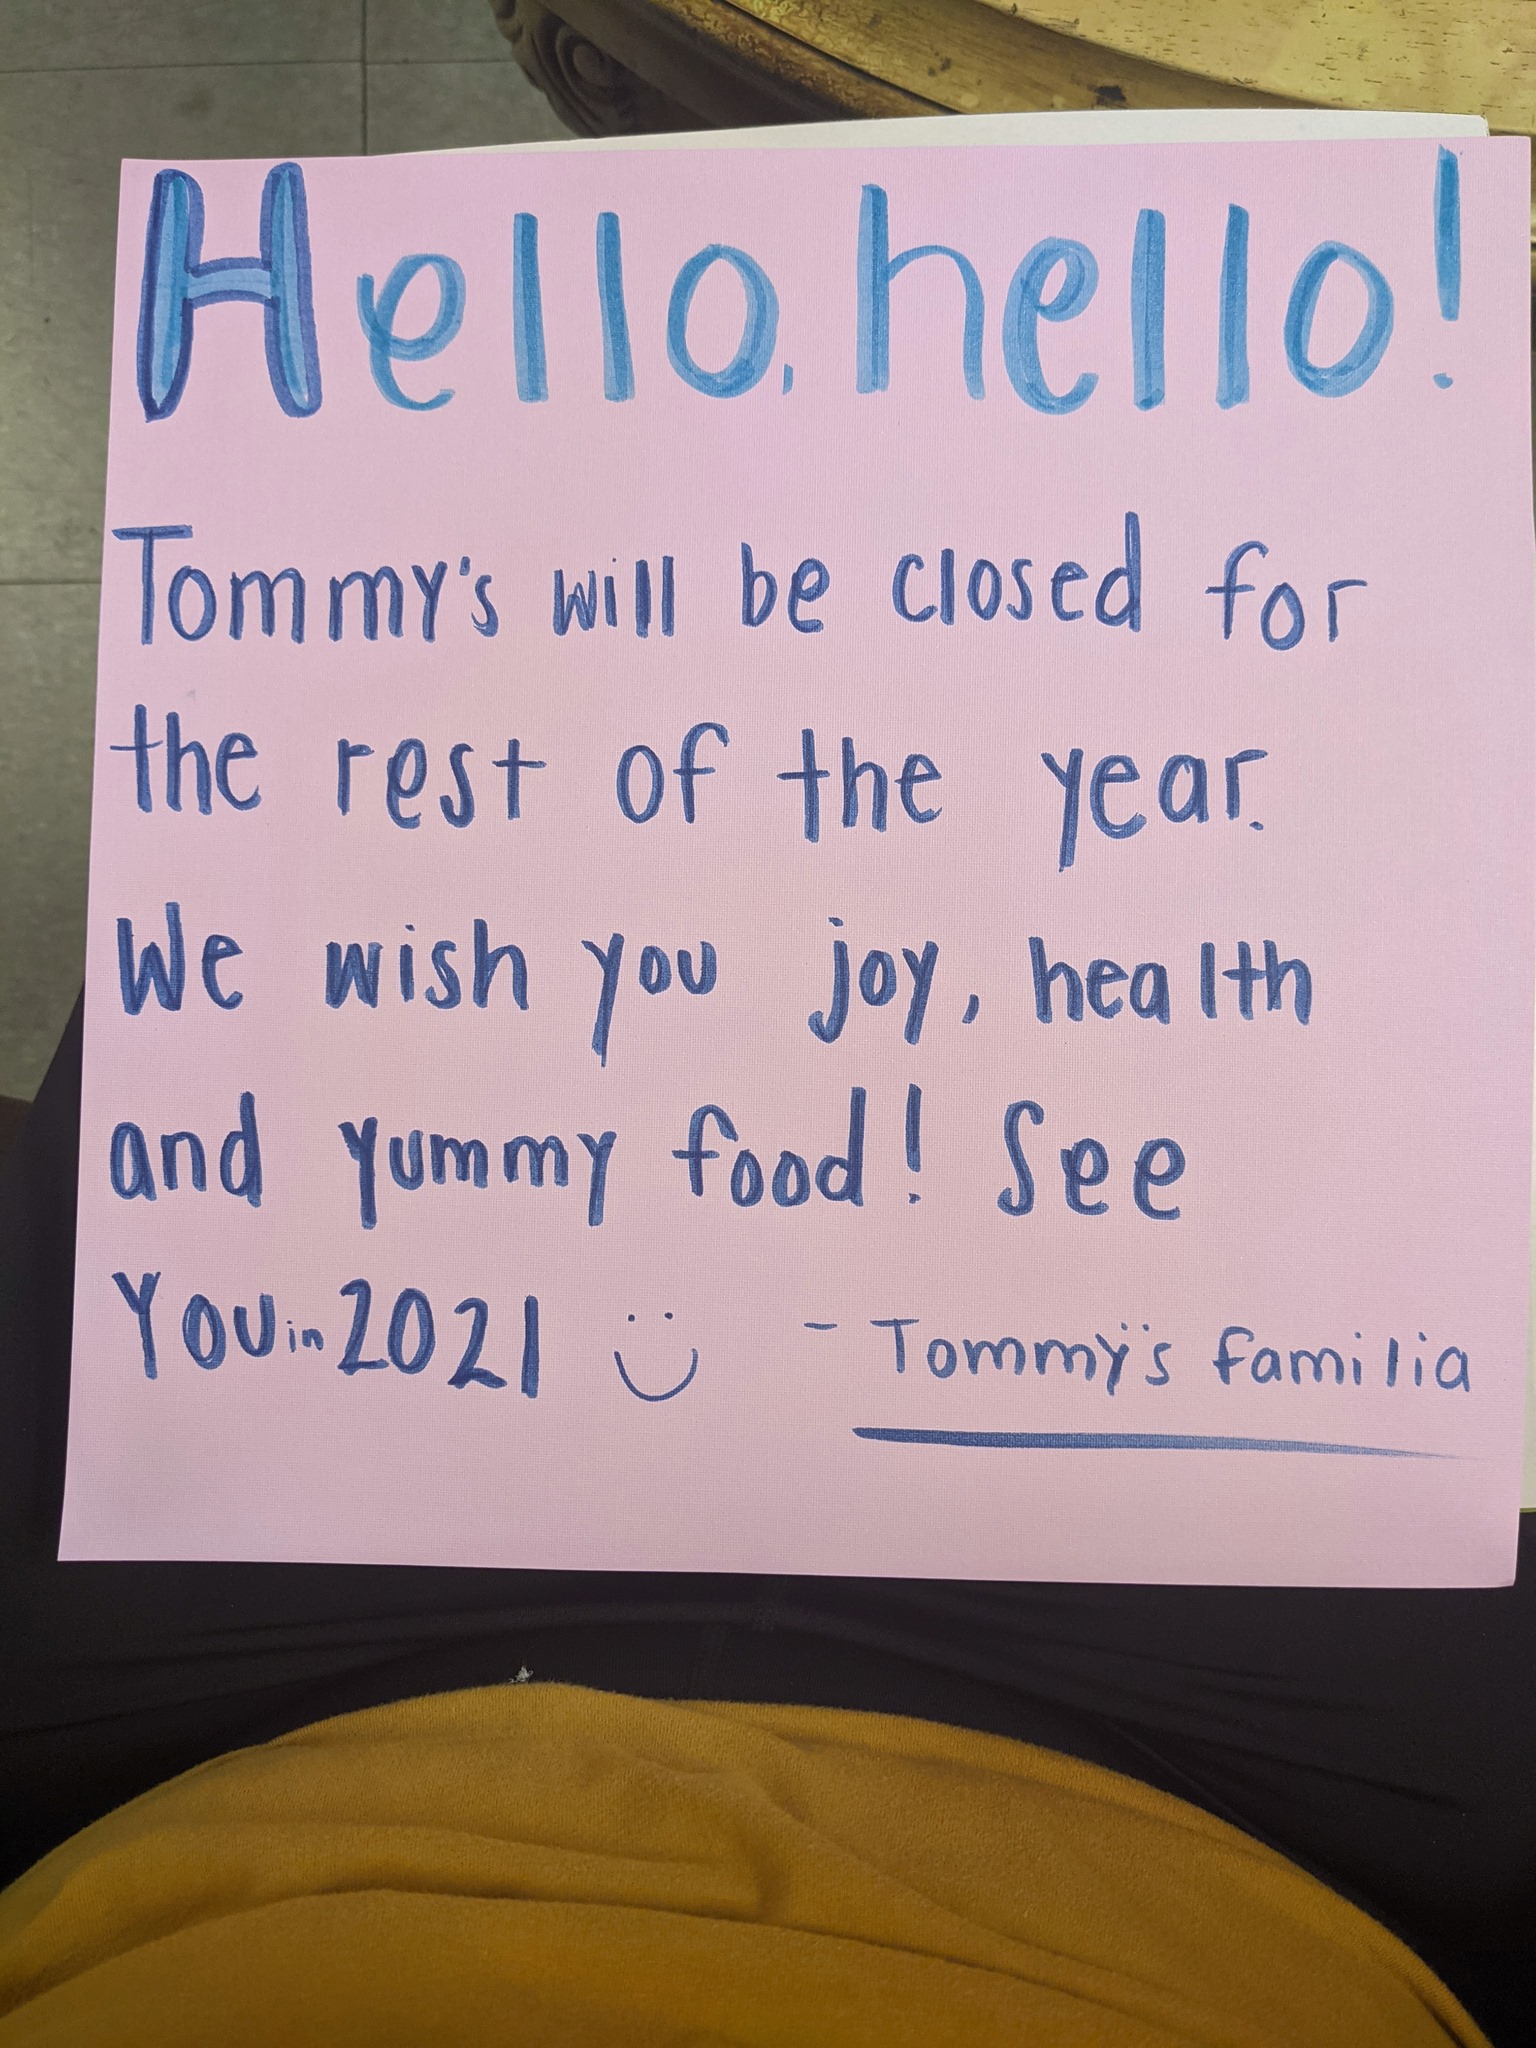 Hello, hello!
Tommy's will be closed for
the rest of the year.
We wish you joy, health
and yummy food! See
You in 2021 - Tommy's familia